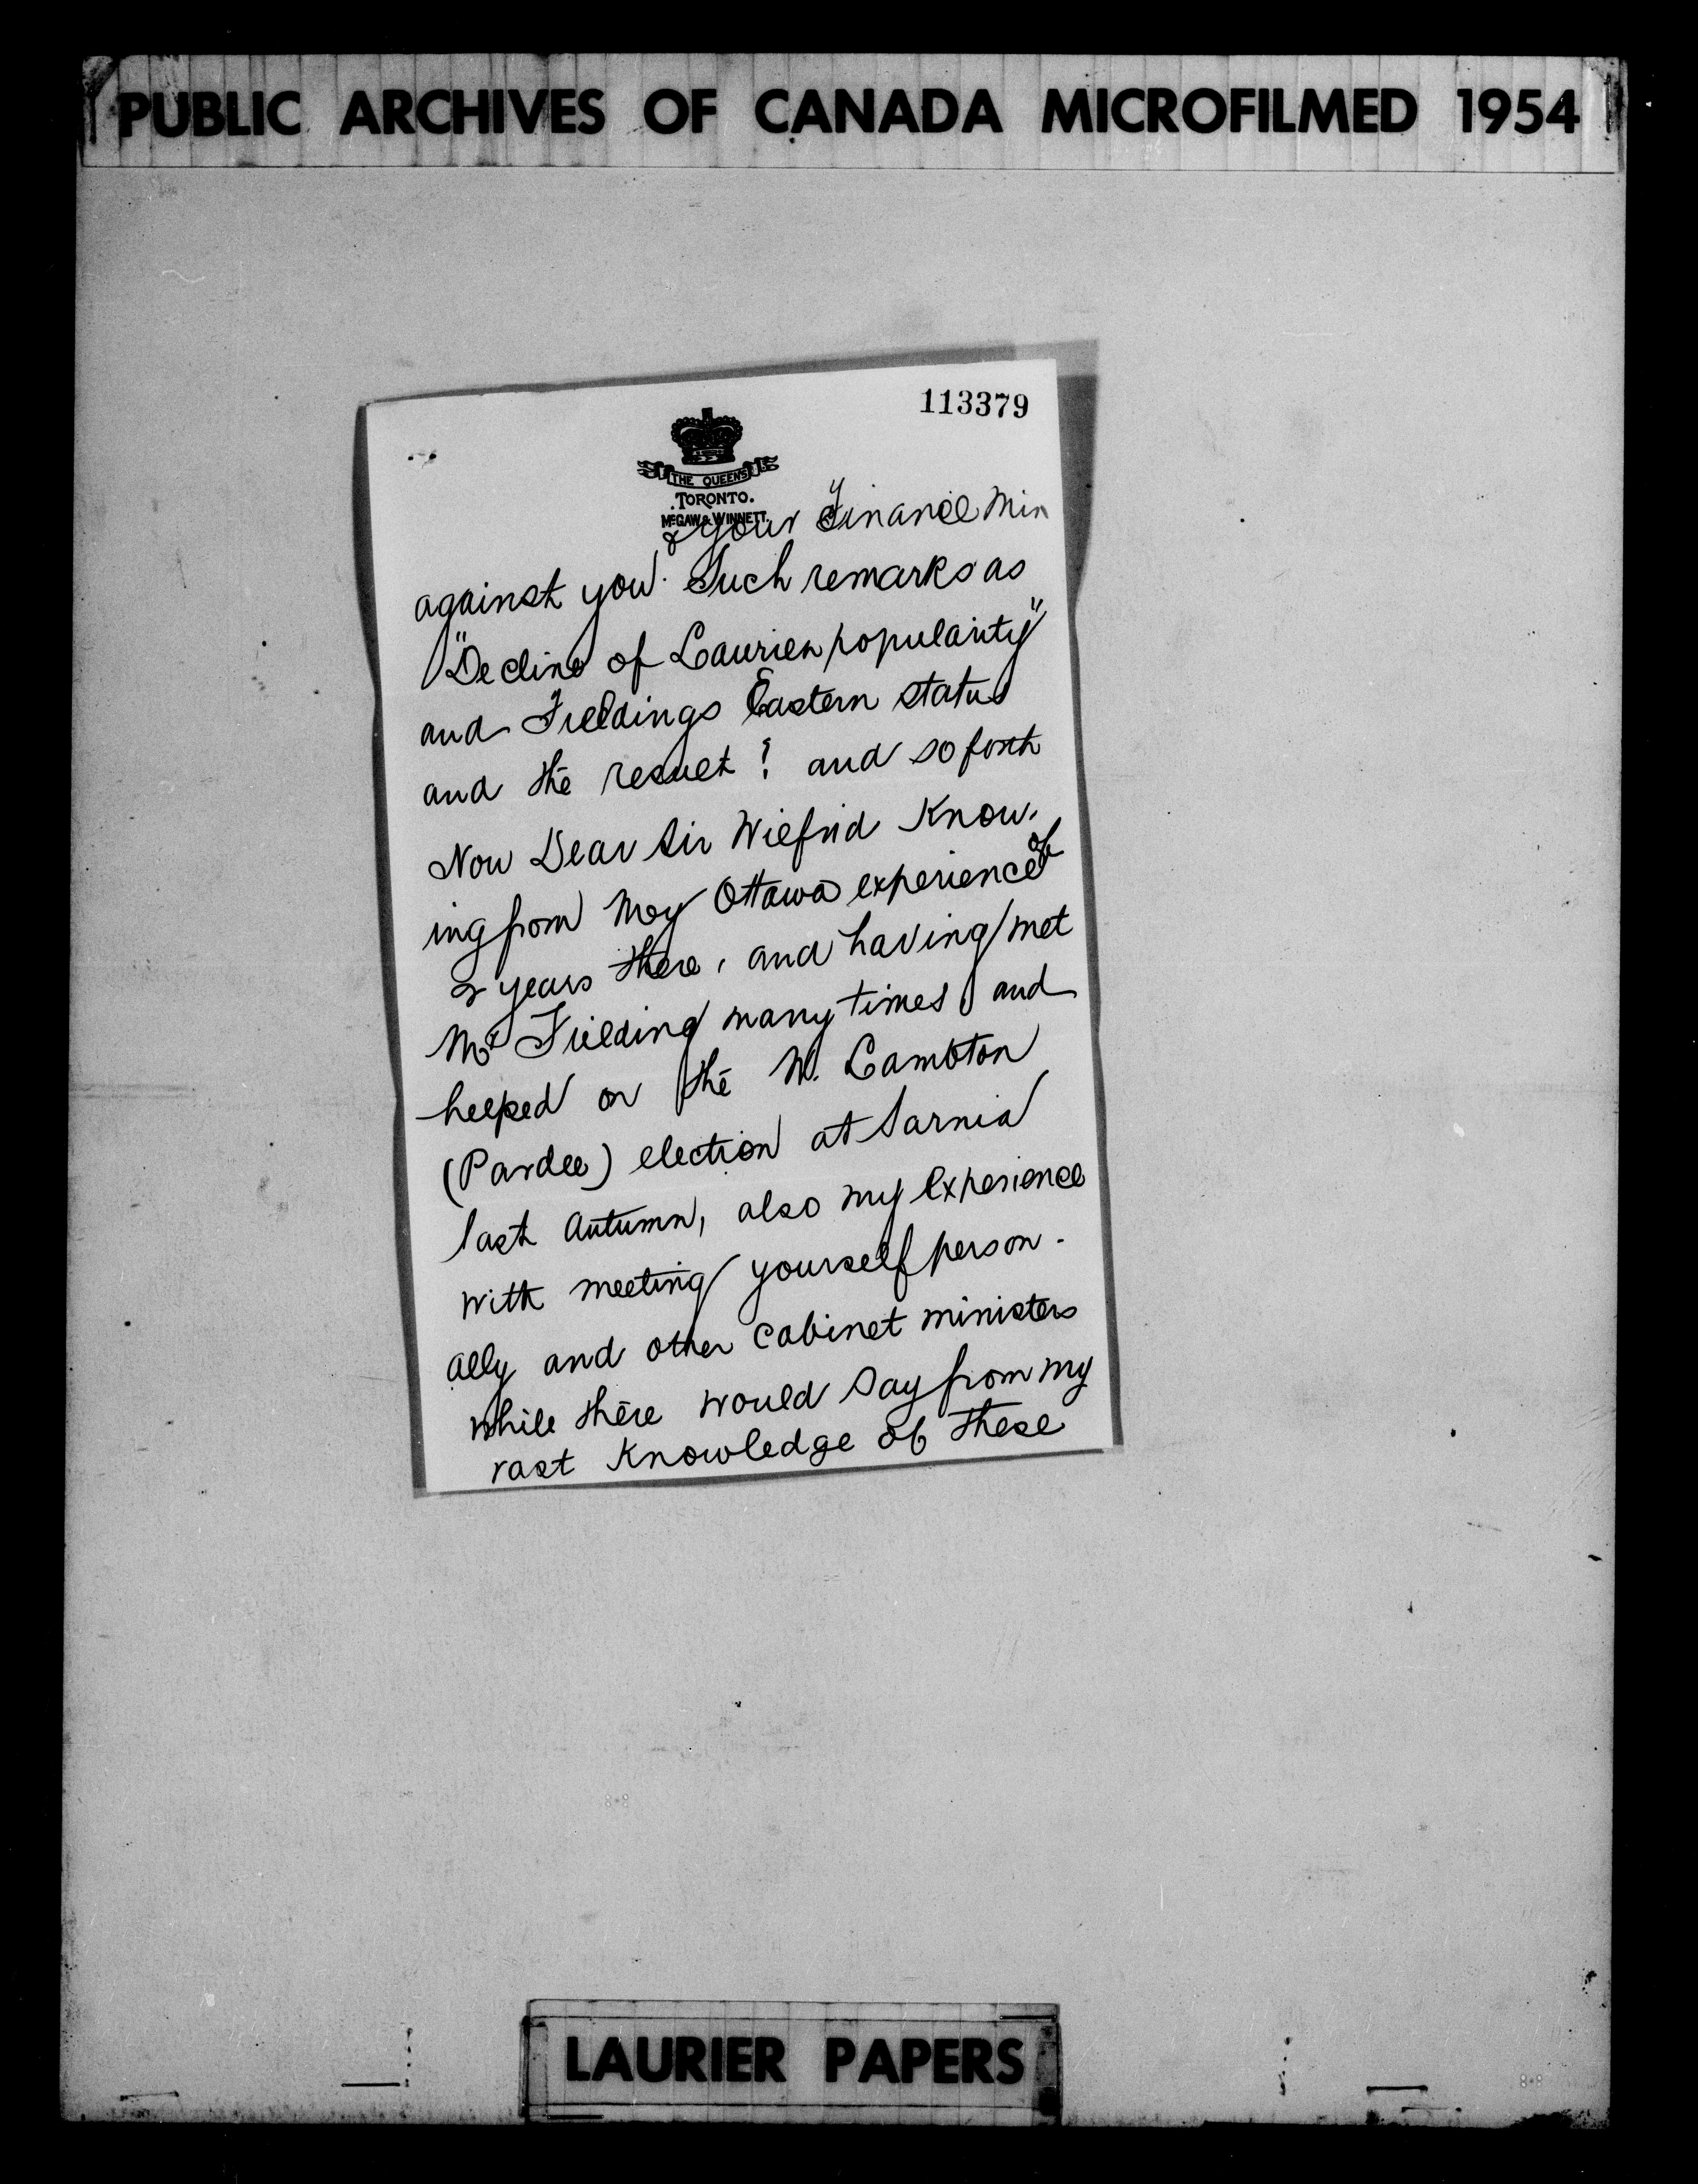 PUBLIC ARCHIVES OF CANADA MICROFILMED 1954
113379
THE QUEENS
TORONTO.
McGAW & WINNETT.
& your Finance Min
against you. Such remarks as
"Decline of Laurier popularity"
and Fieldings Eastern status
and the result! and so forth
Now Dear Sir Wilfrid Know-
ing from my Ottawa experience of
2 years there, and having met
Mr Fielding many times and
helped on the W. Lambton
(Pardee) election at Sarnia
last Autumn, also my experience
with meeting yourself person-
ally and other Cabinet ministers
while there would say from my
vast Knowledge of these
LAURIER PAPERS